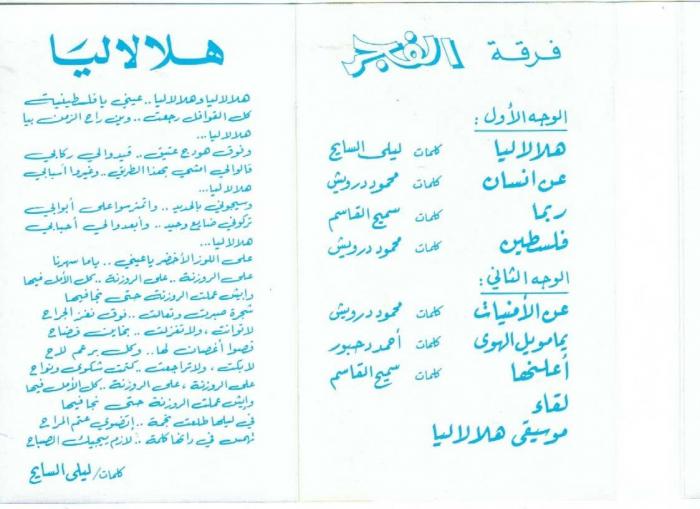 فرقة الفجر
الوجه الأول :
هلالاليا كلمات ليلى السايح
عن انسان كلمات محمود درويش
ربما كلمات سميح القاسم
فلسطين كلمات محمود درويش
الوجه الثاني :
عن الأمنيات كلمات محمود درويش
يا مويل الهوى كلمات أحمد دحبور
أعلنها كلمات سميح القاسم
لقاء
موسيقى هلالاليا
هلالاليا
هلالاليا وهلالاليا .. عيني يا فلسطينيت
كل القوافل رجعت .. وين راح الزمن بيا
هلالاليا ...
وفوق هودج عتيق .. قيدوا لي ركابي
قالوا لي امشي بهذا الطريق .. وغيروا أسبابي
هلالاليا ...
وسيجوني بالحديد .. واتمترسوا على أبوابي
تركوني ضايع وحيد .. وأبعدوا لي أحبابي
هلالاليا ...
على اللوز الأخضر يا عيني .. ياما سهرنا
على الروزنة .. على الروزنة .. كل الأمل فيها
وايش عملت الروزنة حتى نجافيها
شجرة صبرت وتعالت .. فوق نغز الجراح
لا نوانت ، ولا تغزلت .. بخاين فضاح
قصوا أغصان لها .. وكل برعم لاح
لا بكت ، ولا تراجعت .. كتمت شكوى ونواح
على الروزنة ، على الروزنة .. كل الأمل فيها
وايش عملت الروزنة حتى نجافيها
في ليلها طلعت نجمة .. اتضوي عتم المراح
تهمس في راتها كلمة .. لازم ييجيك الصباح
كلمات / ليلى السايح